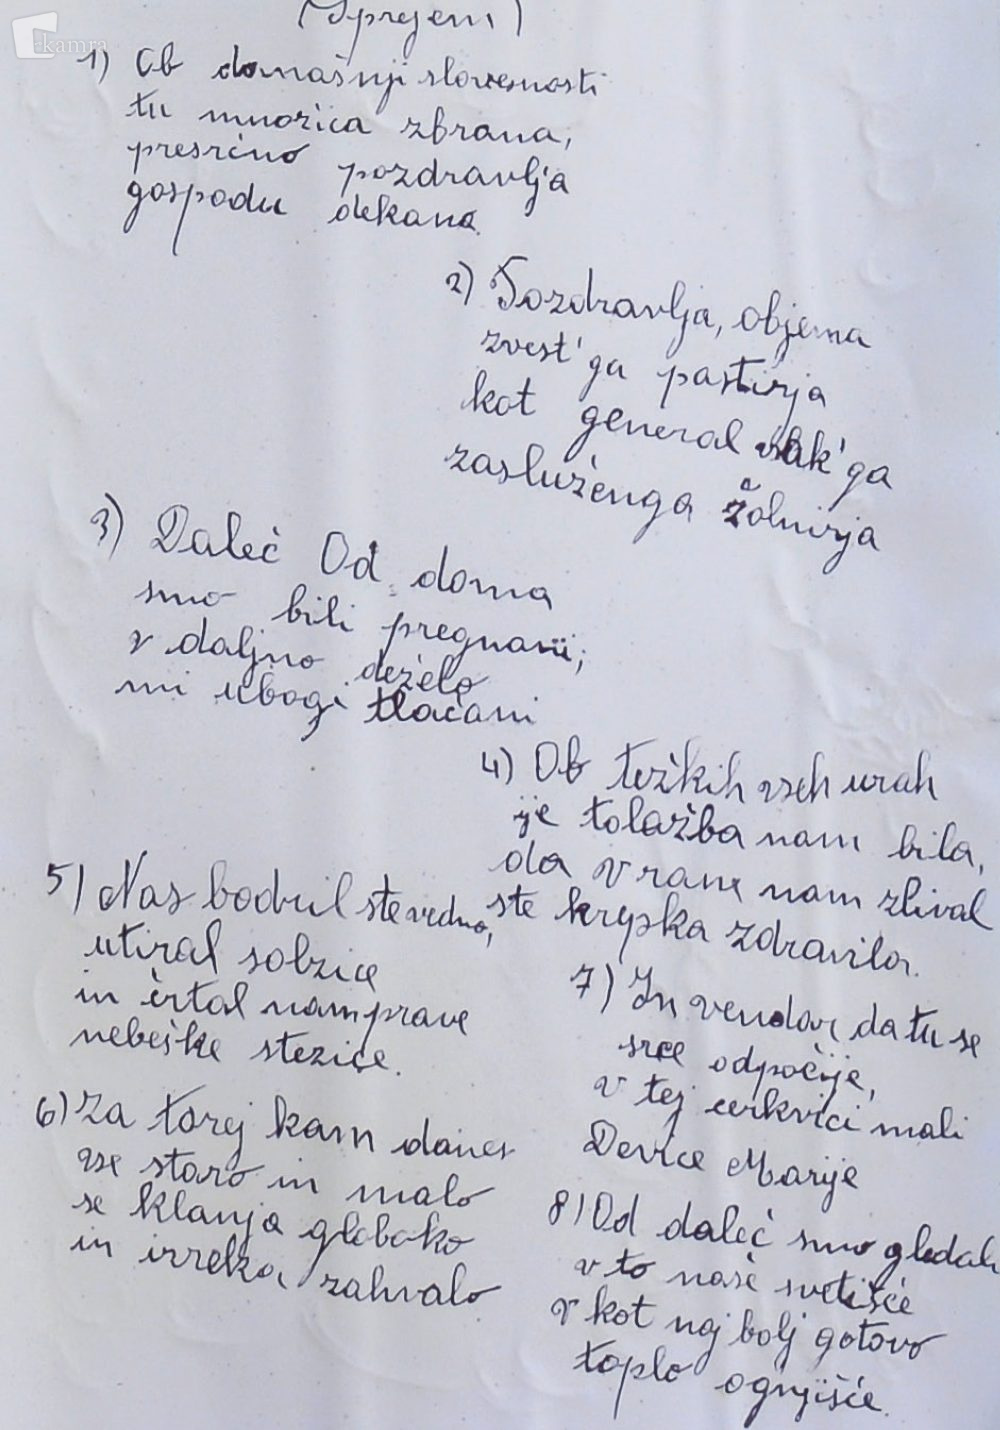 kamra
(Sprejem)
1) Ob domašnji slovesnosti
tu množica zbrana,
presrčno pozdravlja
gospodu dekana.
2) Pozdravlja, objema
zvest'ga pastirja
kot general vsak'ga
zasluženga žolnirja
3) Daleč Od doma
smo bili pregnani;
v daljno deželo
mi ubogi tlačani
4) Ob težkih vseh urah
je tolažba nam bila,
da v rane nam zlival
ste krepka zdravila.
5) Nas bodril ste vedno,
utiral solzice
in črtal nam prave
nebeške stezice.
6) Za torej kam danes
vse staro in malo
se klanja globoko
in izreka zahvalo
7) In vendar da tu se
srce odpočije,
v tej cerkvici mali
Device Marije
8) Od daleč smo gledali
v to naše svetišče
v kot naj bolj gotovo
toplo ognjišče.